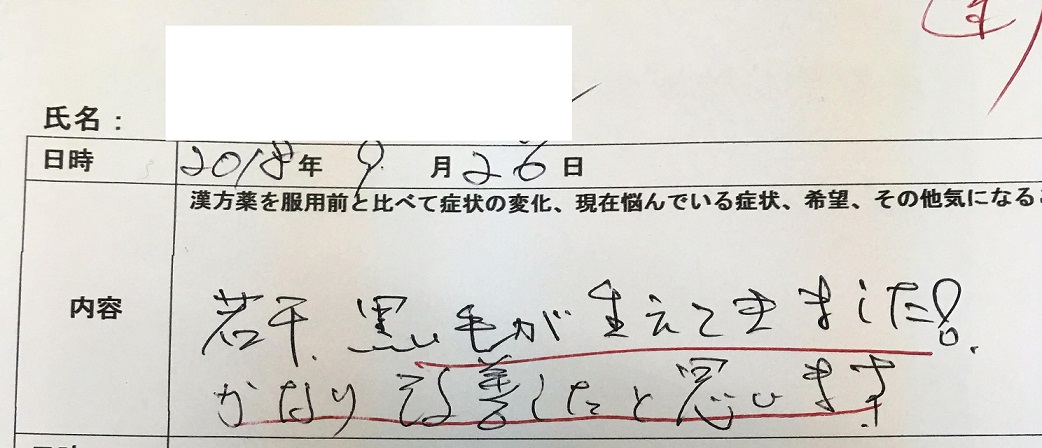 氏名：
日時 2018年 9月26日
漢方薬を服用前と比べて症状の変化、現在悩んでいる症状、希望、その他気になる
内容
若干、黒い毛が生えてきました!。
かなり改善したと思います